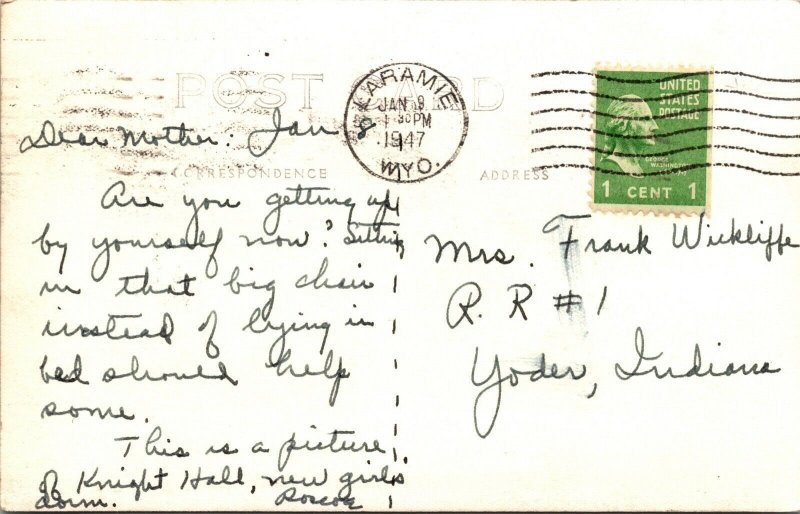 POST CARD
LARAMIE
JAN 9
1 30 PM
1947
WYO.
UNITED
STATES
POSTAGE
GEORGE
WASHINGTON
1 CENT 1
CORRESPONDENCE
ADDRESS
Dear Mother: Jan 8
Are you getting up
by yourself now? Sitting
in that big chair
instead of lying in
bed should help
some.
This is a picture
of Knight Hall, new girls
dorm. Roscoe
Mrs. Frank Wickliffe
R. R #1
Yoder, Indiana